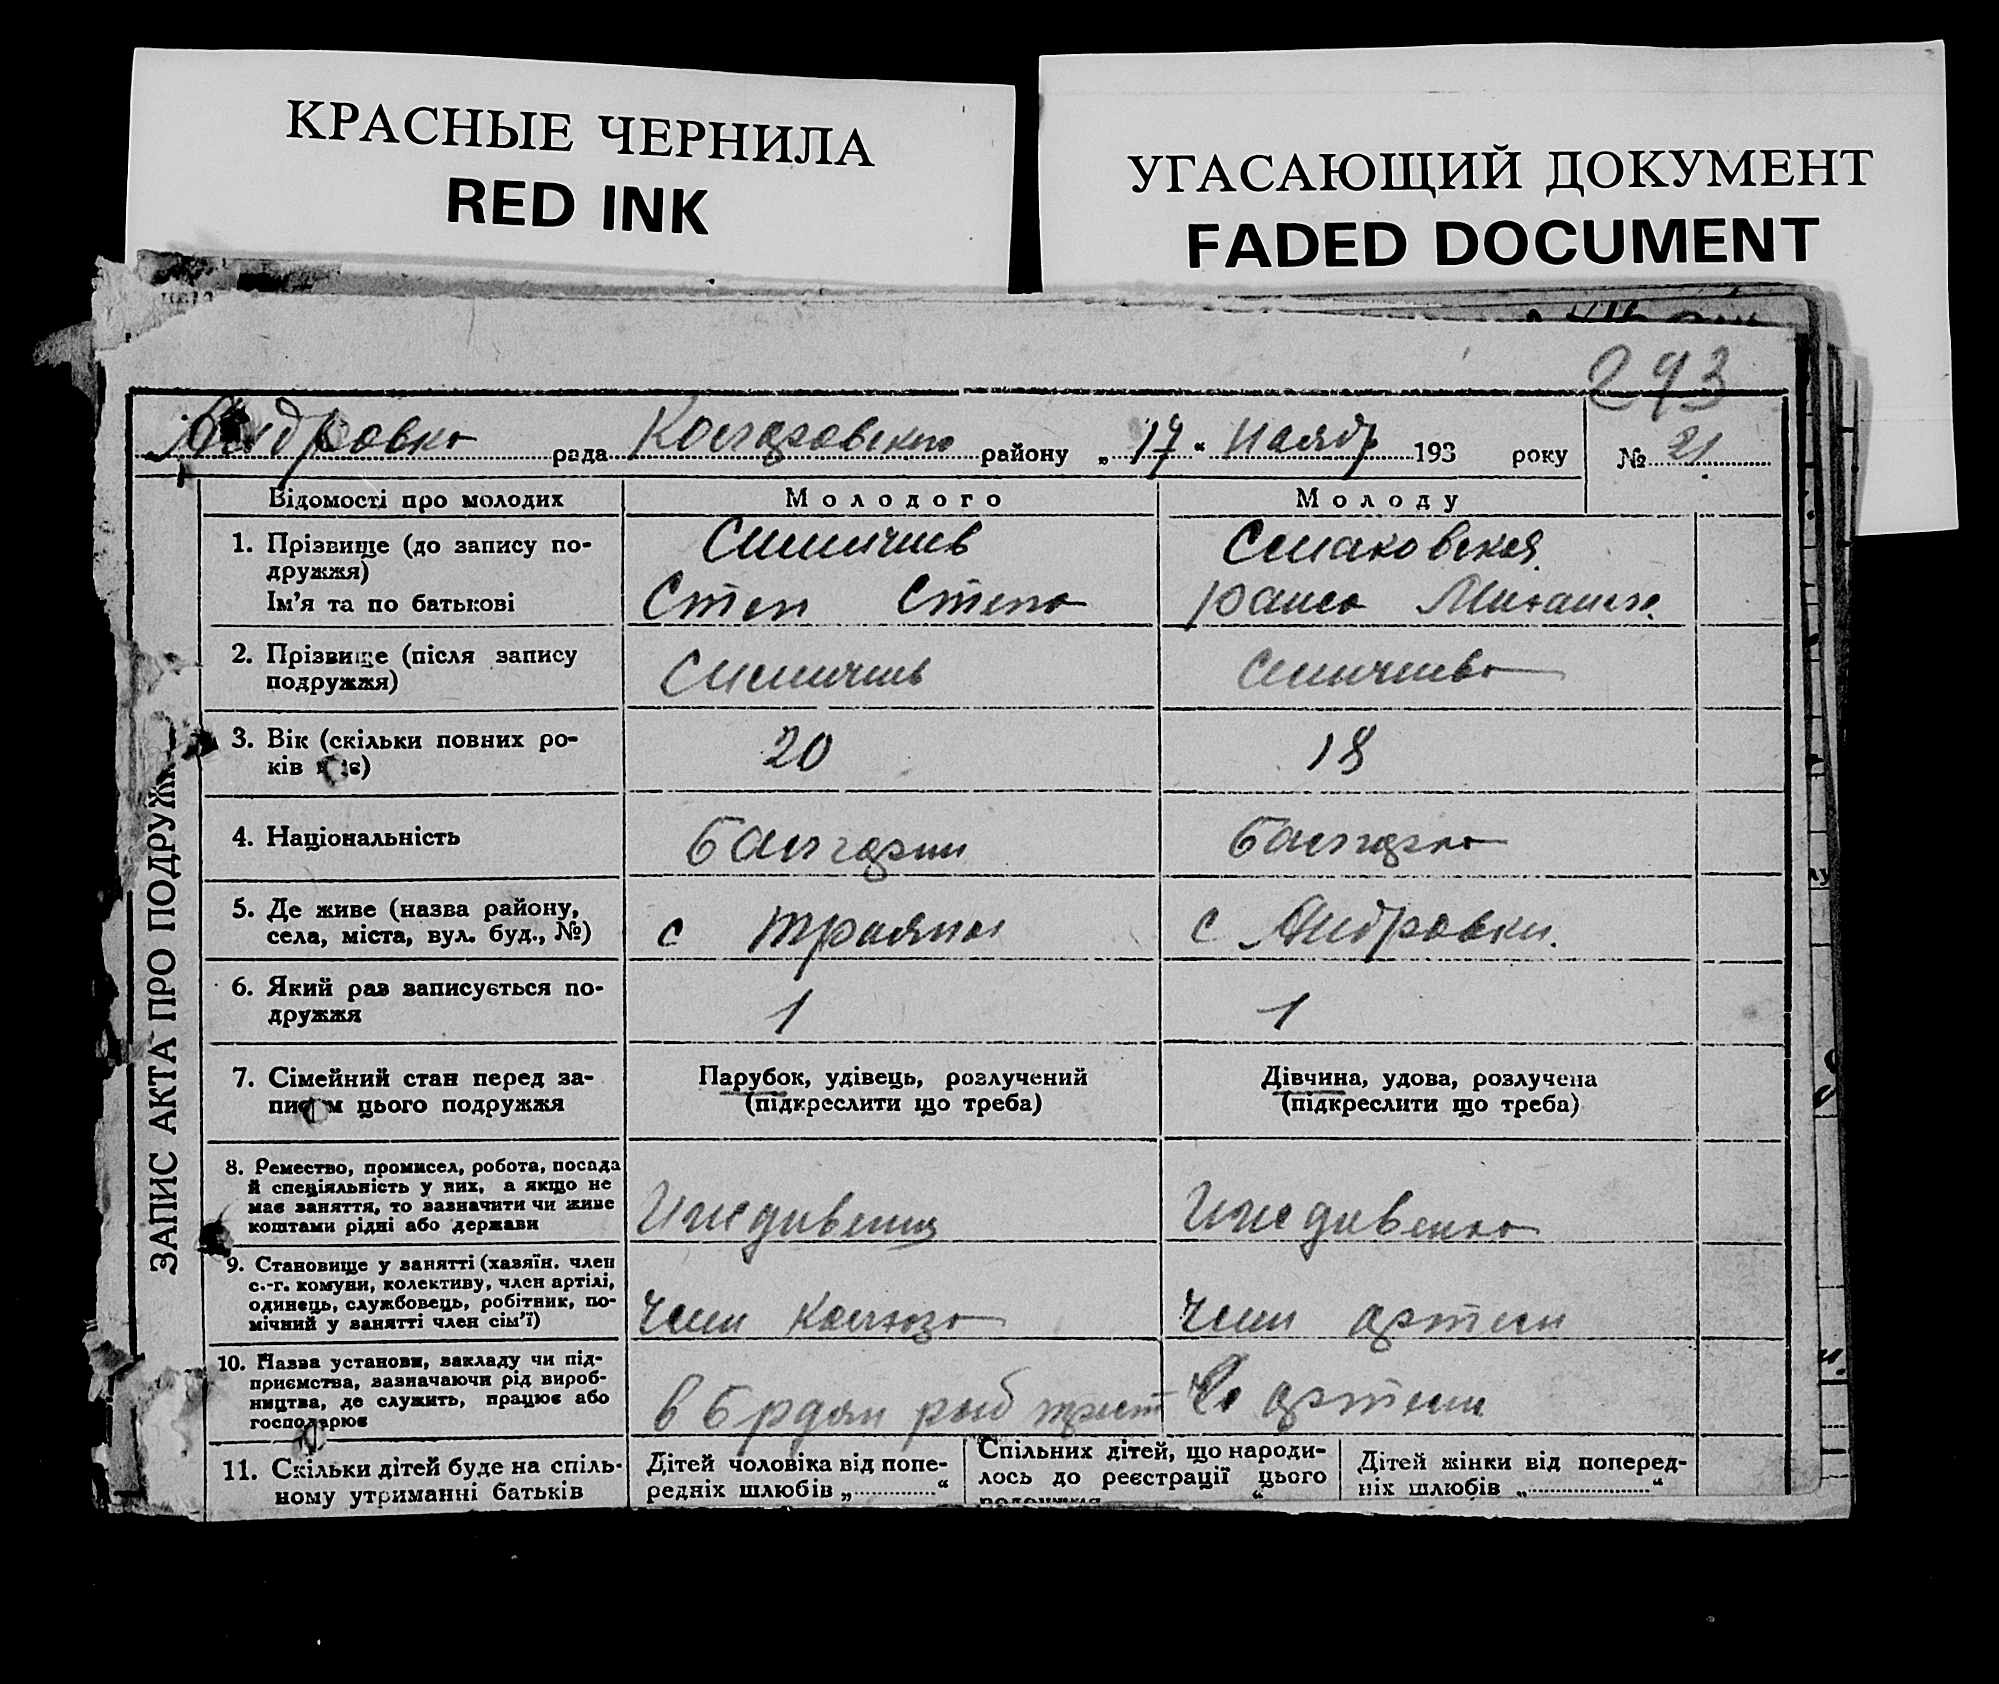 КРАСНЫЕ ЧЕРНИЛА
RED INK
УГАСАЮЩИЙ ДОКУМЕНТ
FADED DOCUMENT
293
Андровка рада Коларовского району „17“ ноябр 193 року № 21
ЗАПИС АКТА ПРО ПОДРУЖ
Відомості про молодих Молодого Молоду
1. Прізвище (до запису по-
дружжя)
Ім'я та по батькові
Степ Степа Раиса
2. Прізвище (після запису
подружжя)
3. Вік (скільки повних ро-
ків має) 20 18
4. Національність Балгарин Балгарка
5. Де живе (назва району,
села, міста, вул. буд., №) с Траяны с Андровки.
6. Який раз записується по-
дружжя 1 1
7. Сімейний стан перед за-
писом цього подружжя
Парубок, удівець, розлучений
(підкреслити що треба)
Дівчина, удова, розлучена
(підкреслити що треба)
8. Ремество, промисел, робота, посада
й спеціяльність у них, а якщо не
має заняття, то зазначити чи живе
коштами рідні або держави
Иждивенец Иждивенка
9. Становище у занятті (хазяїн, член
с.-г. комуни, колективу, член артілі,
одинець, службовець, робітник, по-
мічний у занятті член сім'ї)
Член Колхоза Член артели
10. Назва установи, закладу чи під-
приємства, зазначаючи рід вироб-
ництва, де служить, працює або
господарює
в Брдян рыб трест артели
11. Скільки дітей буде на спіль-
ному утриманні батьків
Дітей чоловіка від попе-
редніх шлюбів „ “
Спільних дітей, що народи-
лось до реєстрації цього
Дітей жінки від поперед-
ніх шлюбів „ “